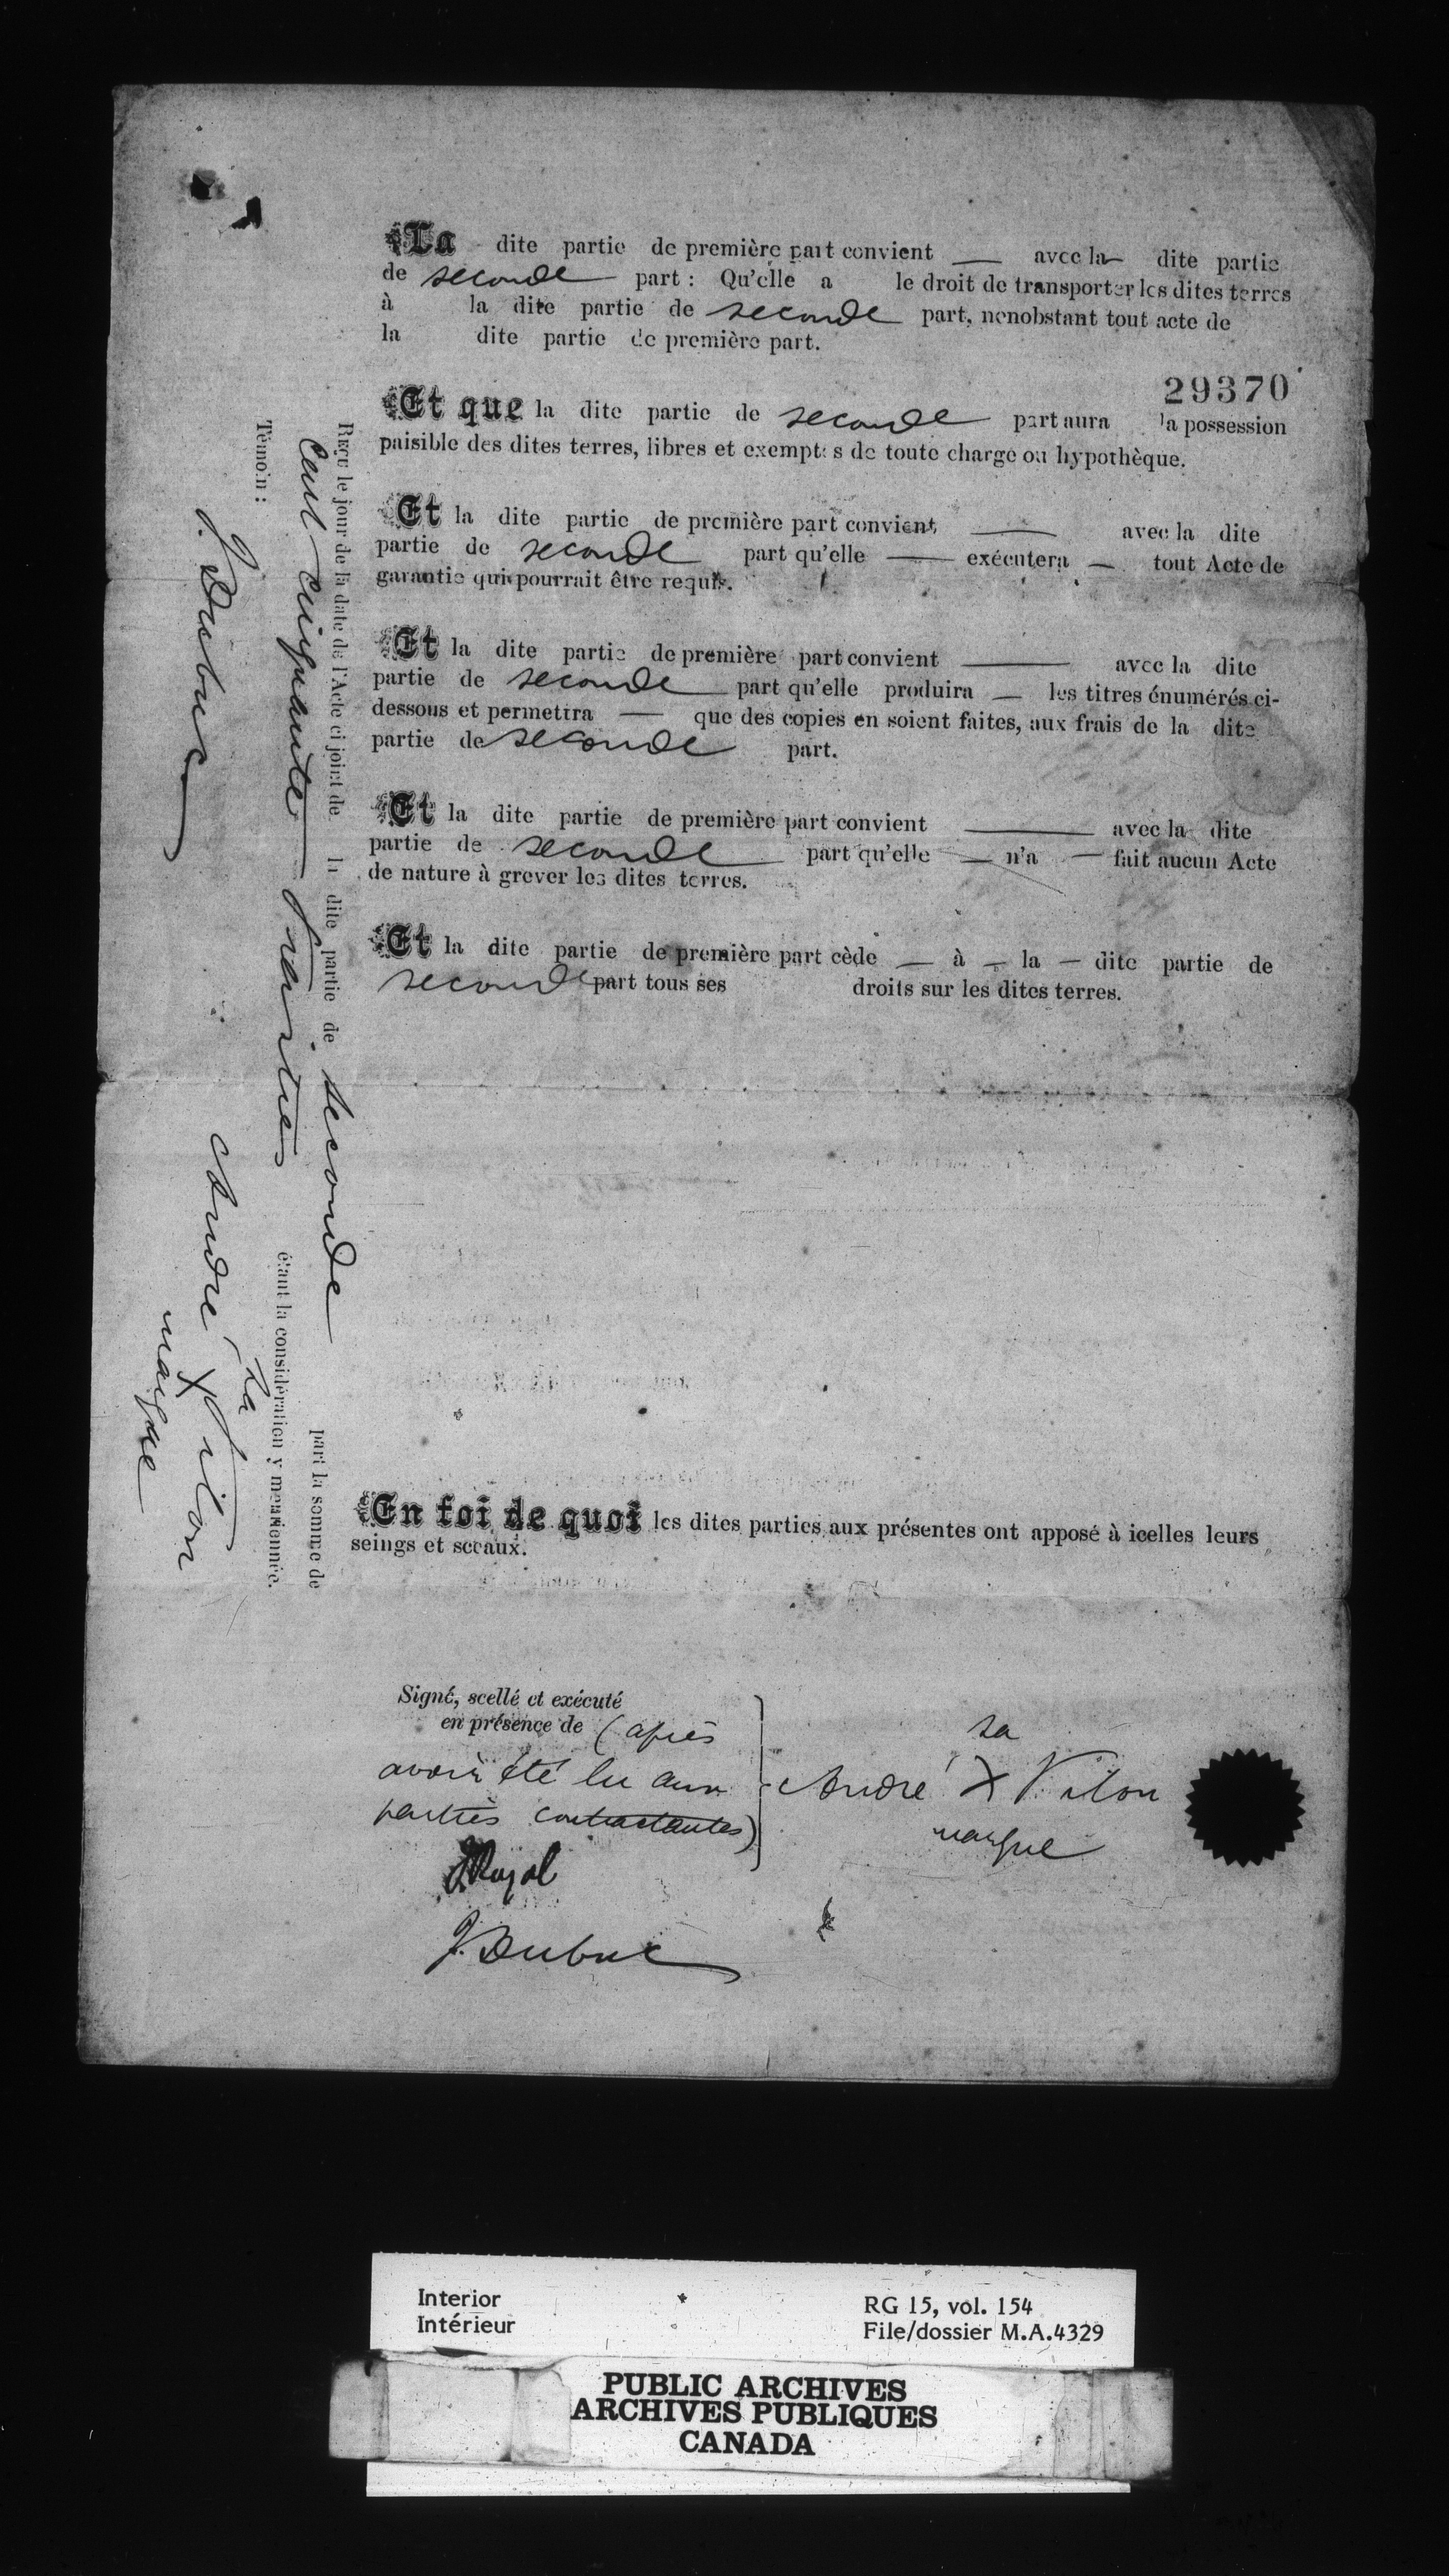 La dite partie de première part convient — avec la — dite partie
de seconde part : Qu'elle a le droit de transporter les dites terres
à la dite partie de seconde part, nonobstant tout acte de
la dite partie de première part.
29370
Et que la dite partie de seconde part aura la possession
paisible des dites terres, libres et exemptes de toute charge ou hypothèque.
Et la dite partie de première part convient — avec la dite
partie de seconde part qu'elle — exécutera — tout Acte de
garantie qui pourrait être requis.
Et la dite partie de première part convient — avec la dite
partie de seconde part qu'elle produira — les titres énumérés ci-
dessous et permettra — que des copies en soient faites, aux frais de la dite
partie de seconde part.
Et la dite partie de première part convient — avec la dite
partie de seconde part qu'elle — n'a — fait aucun Acte
de nature à grever les dites terres.
Et la dite partie de première part cède — à — la — dite partie de
seconde part tous ses droits sur les dites terres.
En foi de quoi les dites parties aux présentes ont apposé à icelles leurs
seings et sceaux.
Signé, scellé et exécuté
en présence de (après
avoir été lu aux
parties contractantes)
sa
André X Pilon
marque
J. Royal
J. Dubuc
Reçu le jour de la date de l'Acte ci joint de la dite partie de seconde part la somme de
Cent cinquante piastres étant la considération y mentionnée.
Témoin :
J. Dubuc
sa
André X Pilon
marque
Interior
Intérieur
RG 15, vol. 154
File/dossier M.A.4329
PUBLIC ARCHIVES
ARCHIVES PUBLIQUES
CANADA